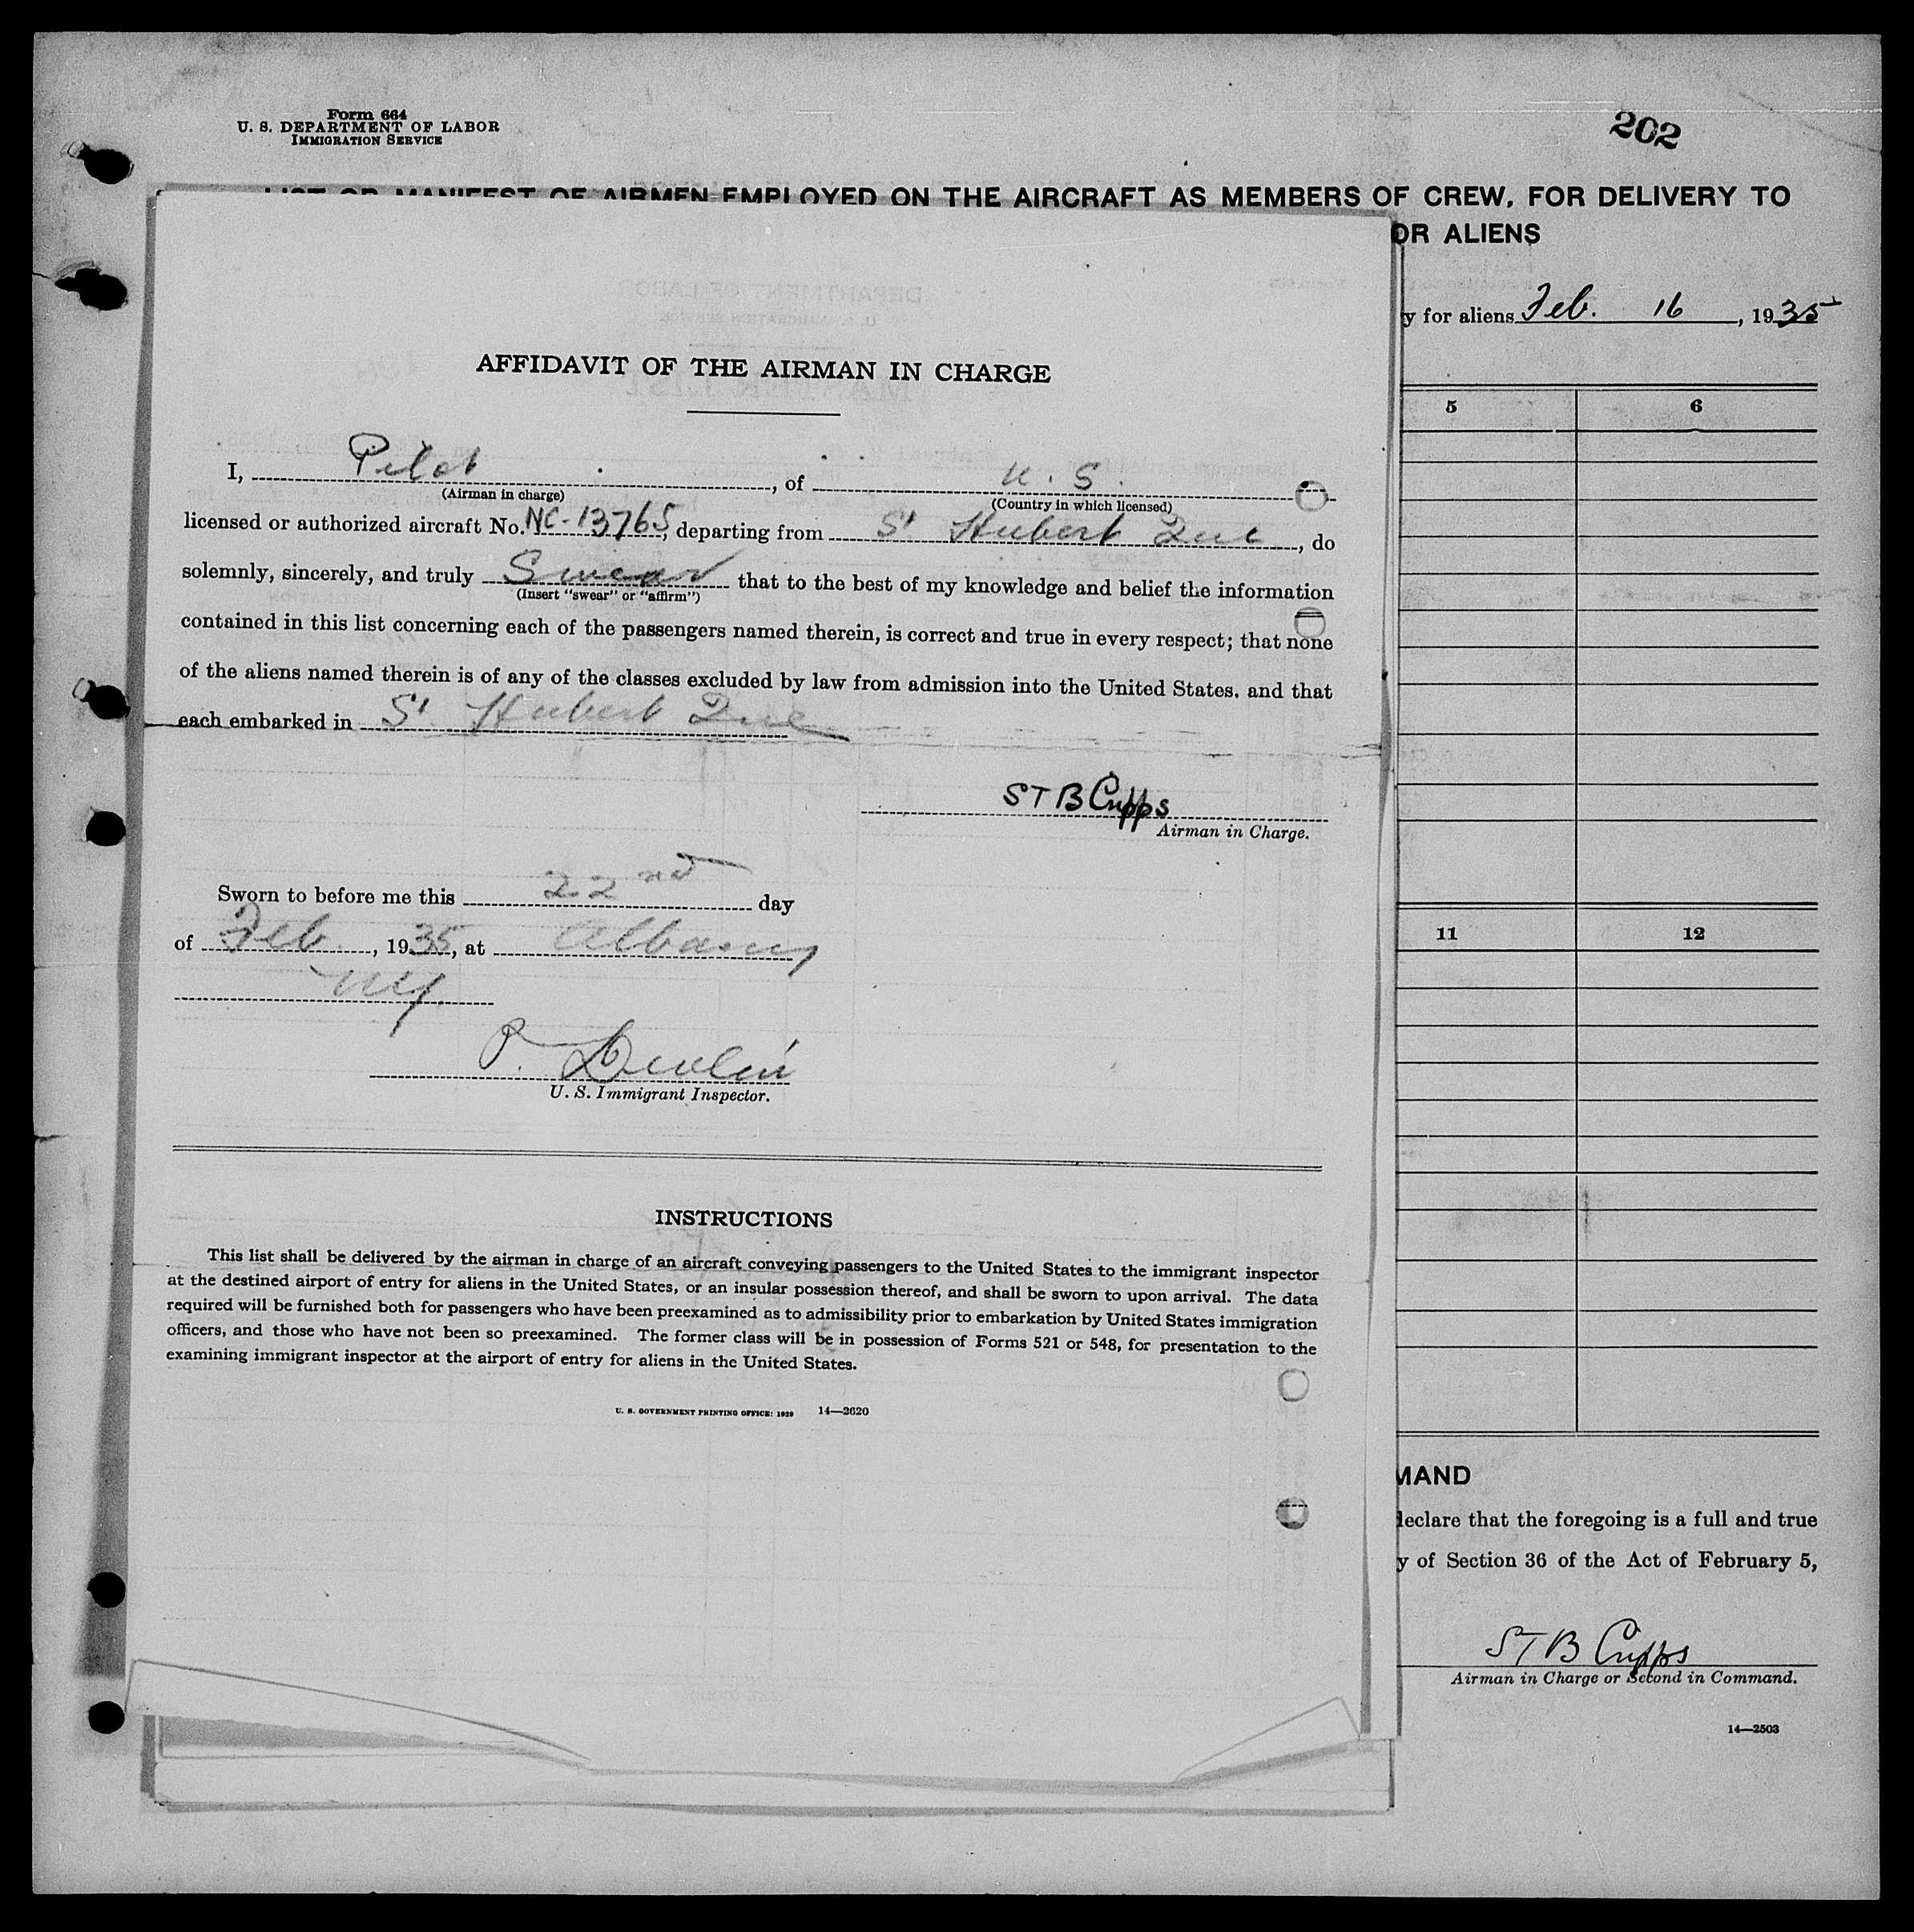 Form 664
U. S. DEPARTMENT OF LABOR
IMMIGRATION SERVICE
202
LIST OR MANIFEST OF AIRMEN EMPLOYED ON THE AIRCRAFT AS MEMBERS OF CREW, FOR DELIVERY TO
OR ALIENS
y for aliens Feb. 16, 1935
5 6
AFFIDAVIT OF THE AIRMAN IN CHARGE
I, Pilot, of U. S.
(Airman in charge) (Country in which licensed)
licensed or authorized aircraft No. NC-13765, departing from St Hubert Que, do
solemnly, sincerely, and truly Swear that to the best of my knowledge and belief the information
(Insert "swear" or "affirm")
contained in this list concerning each of the passengers named therein, is correct and true in every respect; that none
of the aliens named therein is of any of the classes excluded by law from admission into the United States, and that
each embarked in St Hubert Que
STB Cupps
Airman in Charge.
Sworn to before me this 22nd day
of Feb, 1935, at Albany
NY.
P. Devlin
U. S. Immigrant Inspector.
11 12
INSTRUCTIONS
This list shall be delivered by the airman in charge of an aircraft conveying passengers to the United States to the immigrant inspector
at the destined airport of entry for aliens in the United States, or an insular possession thereof, and shall be sworn to upon arrival. The data
required will be furnished both for passengers who have been preexamined as to admissibility prior to embarkation by United States immigration
officers, and those who have not been so preexamined. The former class will be in possession of Forms 521 or 548, for presentation to the
examining immigrant inspector at the airport of entry for aliens in the United States.
U. S. GOVERNMENT PRINTING OFFICE: 1929 14—2620
MAND
declare that the foregoing is a full and true
y of Section 36 of the Act of February 5,
STB Cupps
Airman in Charge or Second in Command.
14—2503